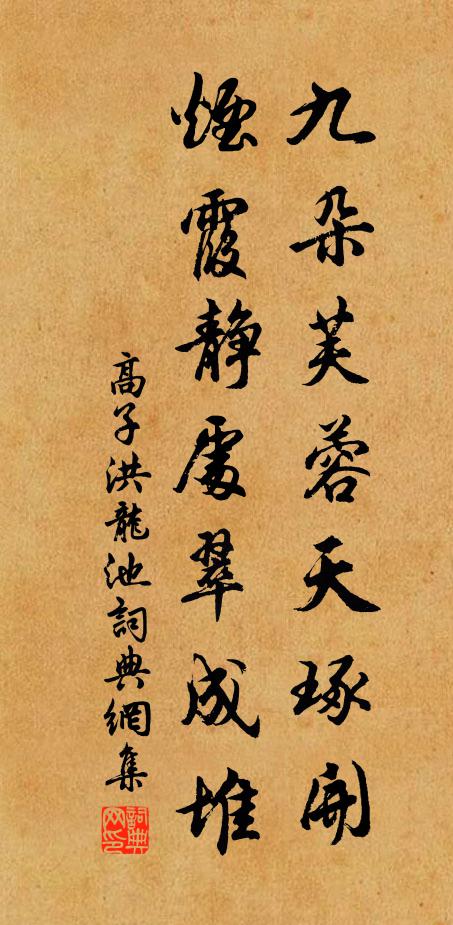 九朵芙蓉天琢開
煙霞静處翠成堆
高子洪龍池詞典網集
詞典網印